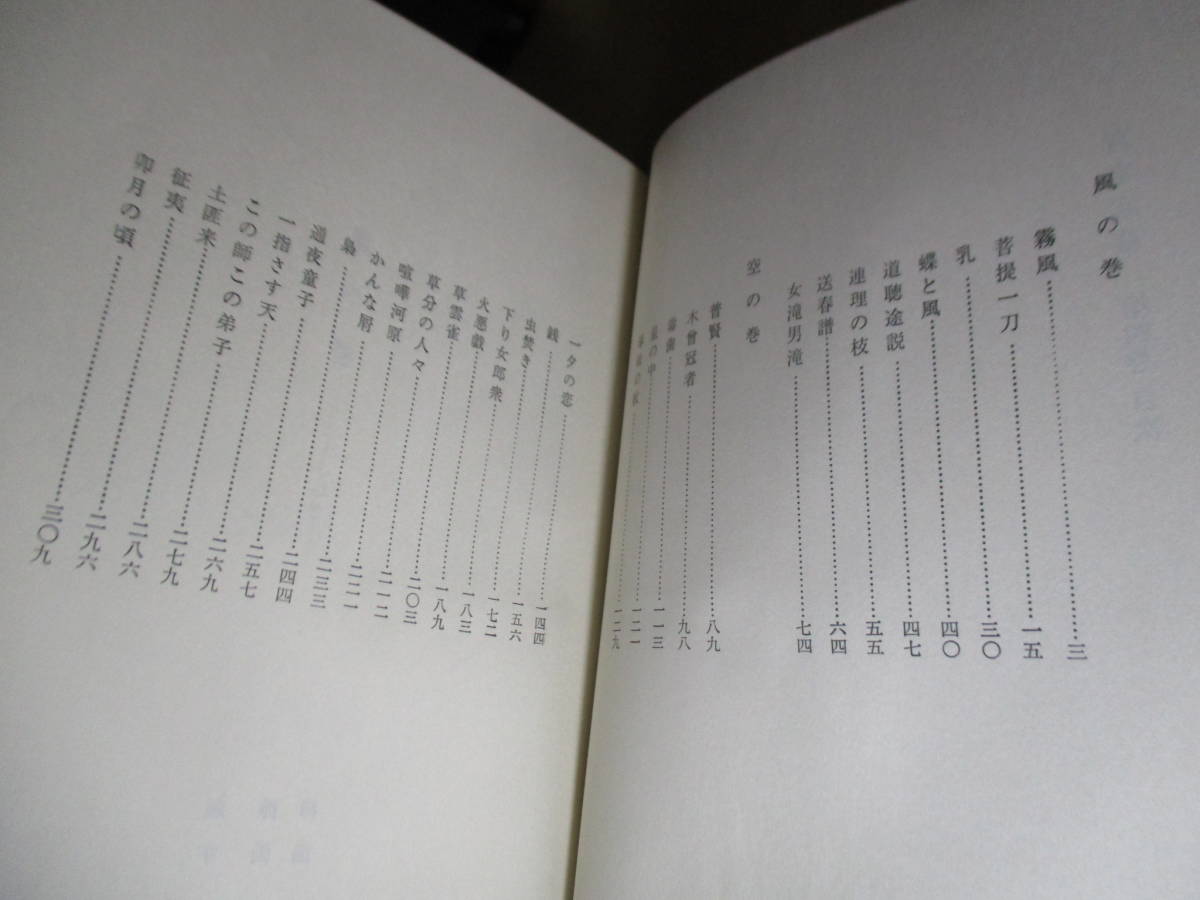 風の巻
霧風……三
菩提一刀……一五
乳……三〇
蝶と風……四〇
道聴途説……四七
連理の枝……五五
送春譜……六四
女滝男滝……七四
空の巻
普賢……八九
木曾冠者……九八
毒歯……一一三
の中……一二一
の杖……一二九
一夕の恋……一四四
銭……一五六
虫焚き……一七二
下り女郎衆……一八三
火悪戯……一八九
草雲雀……二〇三
草分の人々……二一二
喧嘩河原……二二一
かんな屑……二三三
梟……二四四
通夜童子……二五七
一指さす天……二六九
この師この弟子……二七九
土匪来……二八六
征夷……二九六
卯月の頃……三〇九